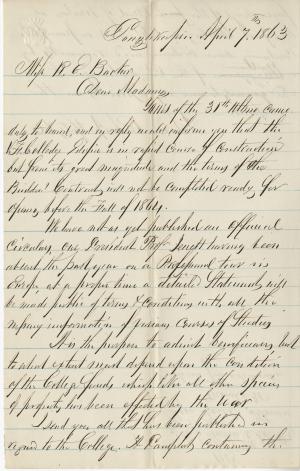 Poughkeepsie April 7th 1863
Miss R. E. Baxter
Dear Madam,
Yours of the 31st Ultimo came
duly to hand, and in reply would inform you that the
V. F. College Edifice is in rapid Course of Construction
but from its great magnitude and the terms of the
Builders' Contract, will not be completed ready for
opening before the Fall of 1864.
We have not as yet published an Official
Circular, Our President Profr Jewett having been
absent the past year on a Professional tour in
Europe, at a proper time a detailed Statement will
be made public of terms & Conditions with all the
information of various Courses of Studies
It is the purpose to admit
to what extent must depend upon the Condition
of the College funds which like all other species
of property has been effected by the war.
I send you all that has been published in
regard to the College. A Pamphlet containing the